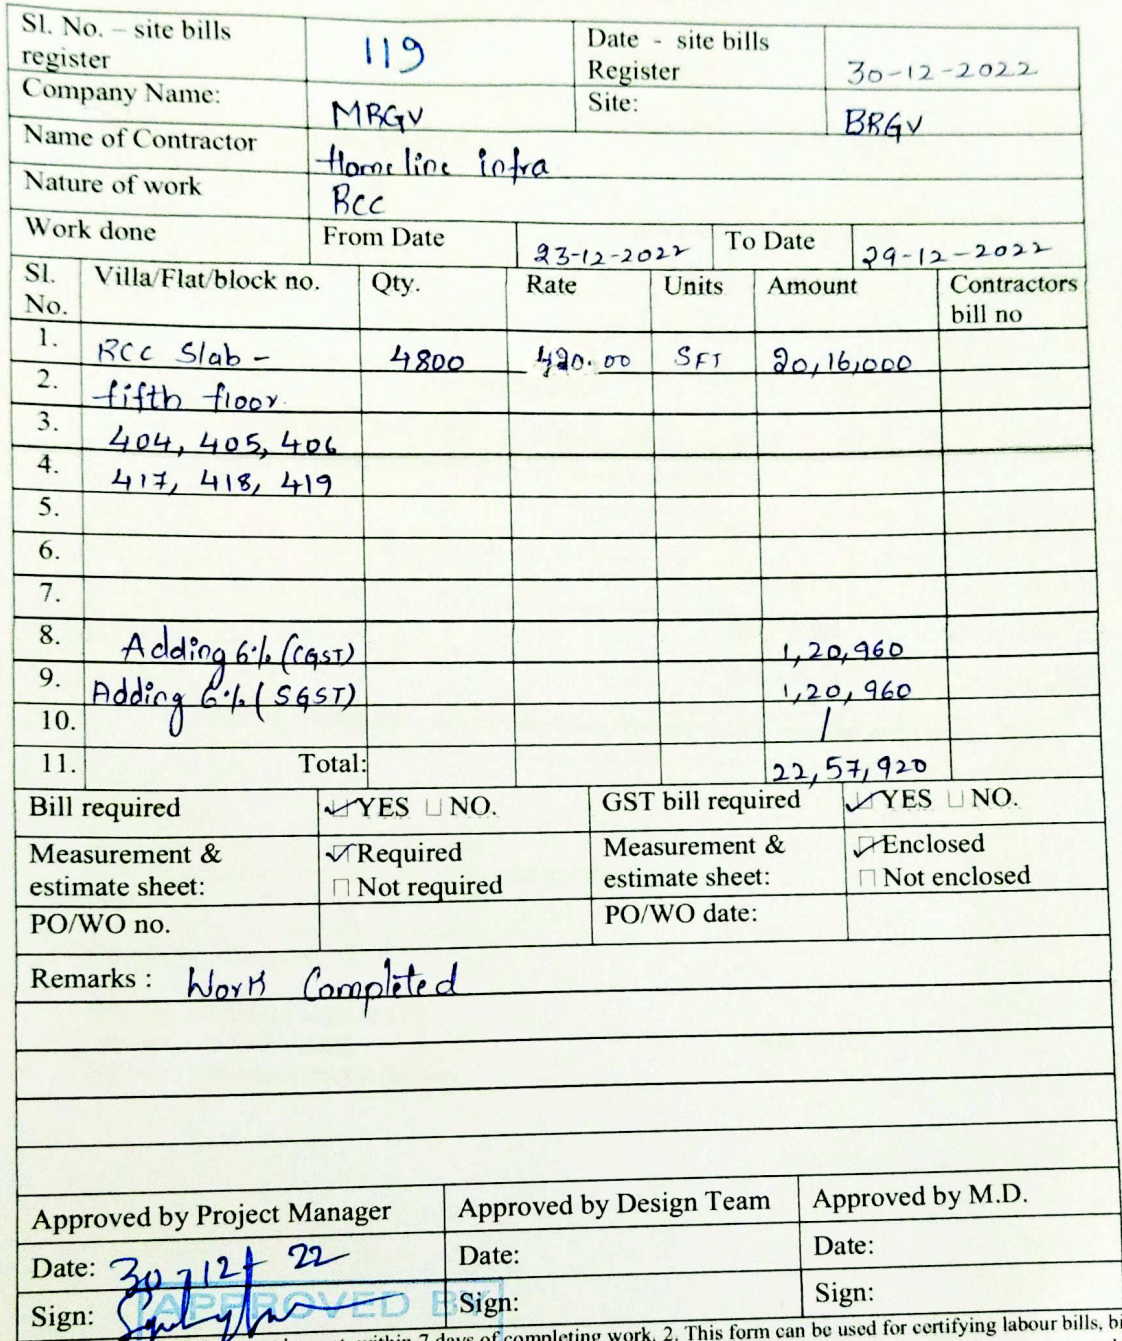 Sl. No. – site bills register 119 Date - site bills Register 30-12-2022
Company Name: MRGV Site: BRGV
Name of Contractor Homeline infra
Nature of work RCC
Work done From Date 23-12-2022 To Date 29-12-2022
Sl. No. Villa/Flat/block no. Qty. Rate Units Amount Contractors bill no
1. RCC Slab - 4800 420.00 SFT 20,16,000
2. fifth floor
3. 404, 405, 406
4. 417, 418, 419
5.
6.
7.
8. Adding 6% (CGST) 1,20,960
9. Adding 6% (SGST) 1,20,960
10. /
11. Total: 22,57,920
Bill required YES NO. GST bill required YES NO.
Measurement & estimate sheet: Required Not required Measurement & estimate sheet: Enclosed Not enclosed
PO/WO no. PO/WO date:
Remarks : Work Completed
Approved by Project Manager Approved by Design Team Approved by M.D.
Date: 30-12-22 Date: Date:
Sign: APPROVED BY Sign: Sign:
within 7 days of completing work. 2. This form can be used for certifying labour bills,